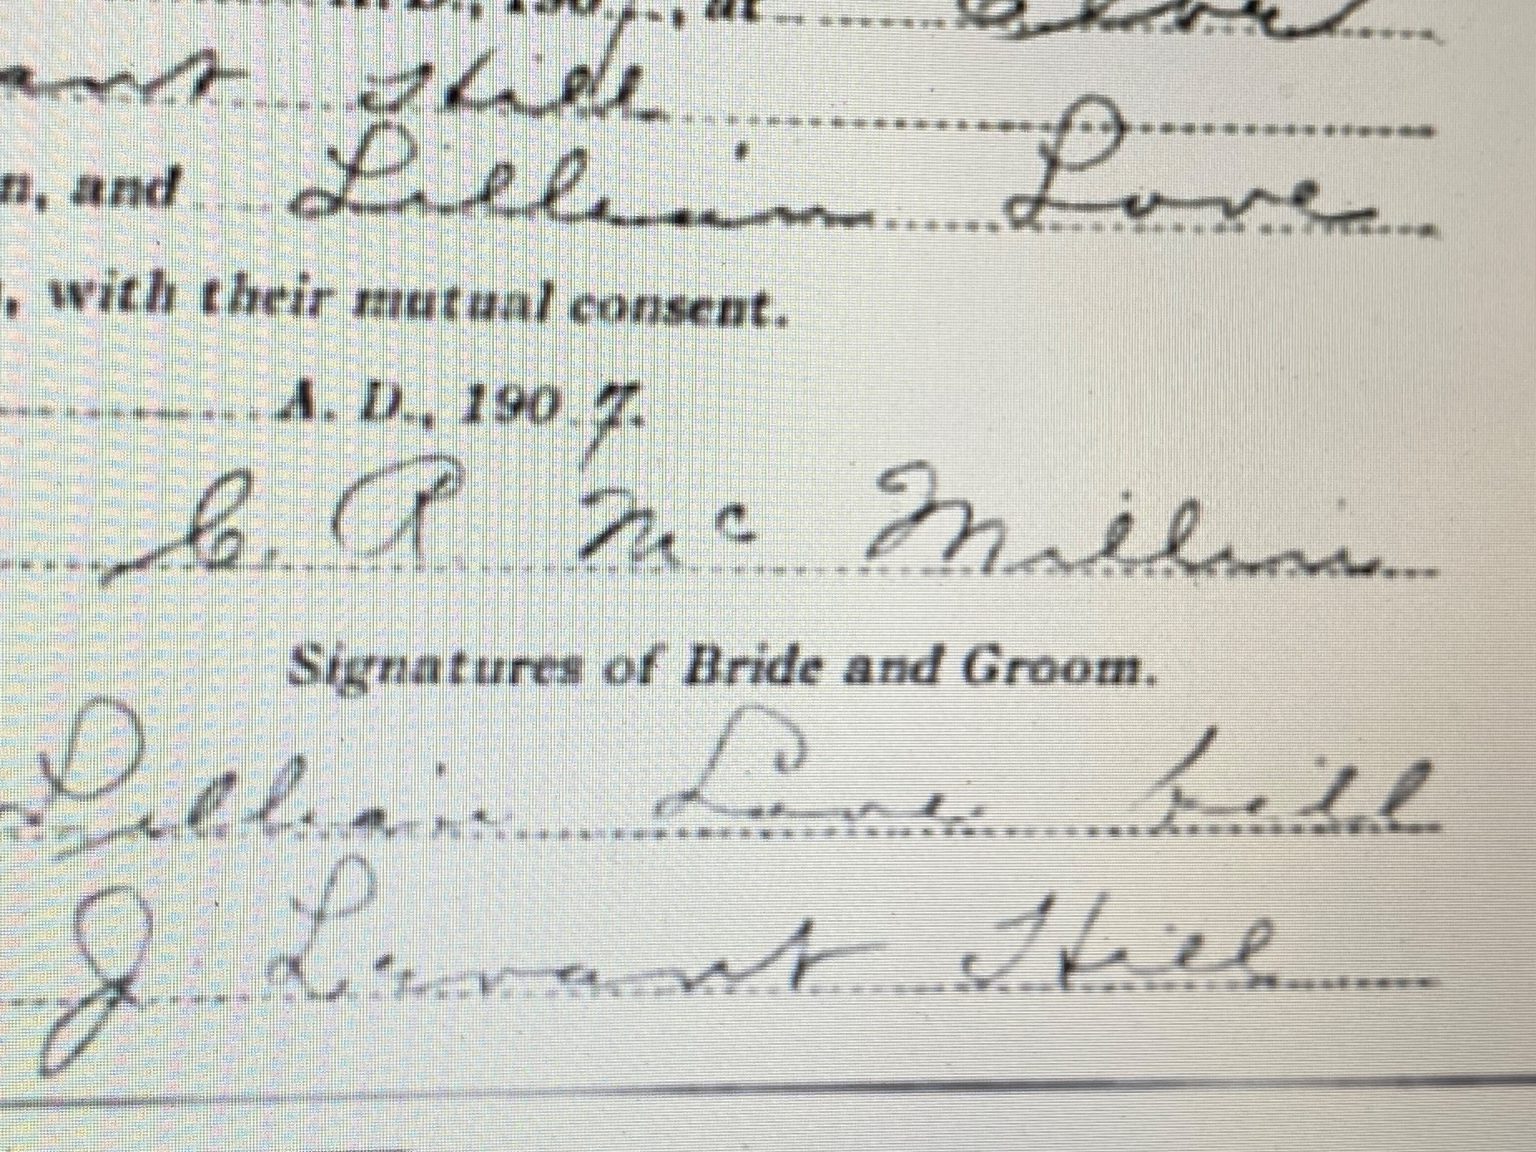 A. D., 1907, at
ant Hill
n, and Lillian Love
, with their mutual consent.
A. D., 1907.
C. A. Mc Millan
Signatures of Bride and Groom.
Lillian Love Hill
J Levant Hill